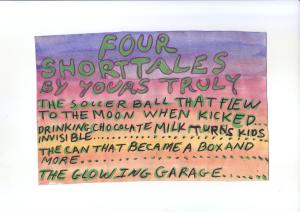 FOUR
SHORT TALES
BY YOURS TRULY
THE SOCCER BALL THAT FLEW
TO THE MOON WHEN KICKED...
DRINKING CHOCOLATE MILK TURNS KIDS
INVISIBLE..............................
THE CAN THAT BECAME A BOX AND
MORE..........................
THE GLOWING GARAGE......